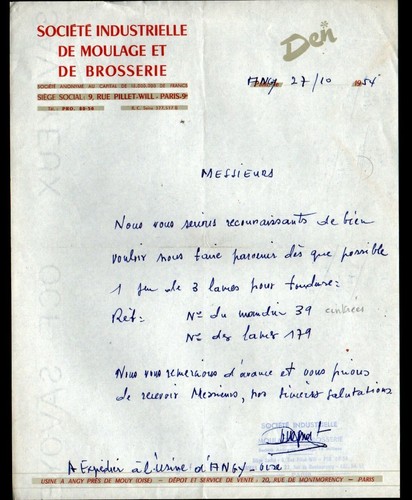 SOCIÉTÉ INDUSTRIELLE
DE MOULAGE ET
DE BROSSERIE
SOCIÉTÉ ANONYME AU CAPITAL DE FRANCS
SIÈGE SOCIAL: 9, RUE PILLET-WILL - PARIS-9e
Tél.: PRO. 80-56 R.C. Seine
Den
ANGY 27/10 1954
MESSIEURS
Nous vous serions reconnaissants de bien
vouloir nous faire parvenir dès que possible
1 jeu de 3 lames pour tondeuse:
Réf: No du mandrin 39
No des lames 179
Nous vous remercions d'avance et vous prions
de recevoir Messieurs, nos sincères salutations
SOCIÉTÉ INDUSTRIELLE
A Expédier à l'usine d'ANGY-oise
USINE A ANGY PRÈS DE MOUY (OISE) — DÉPOT ET SERVICE DE VENTE : 20, RUE DE MONTMORENCY — PARIS